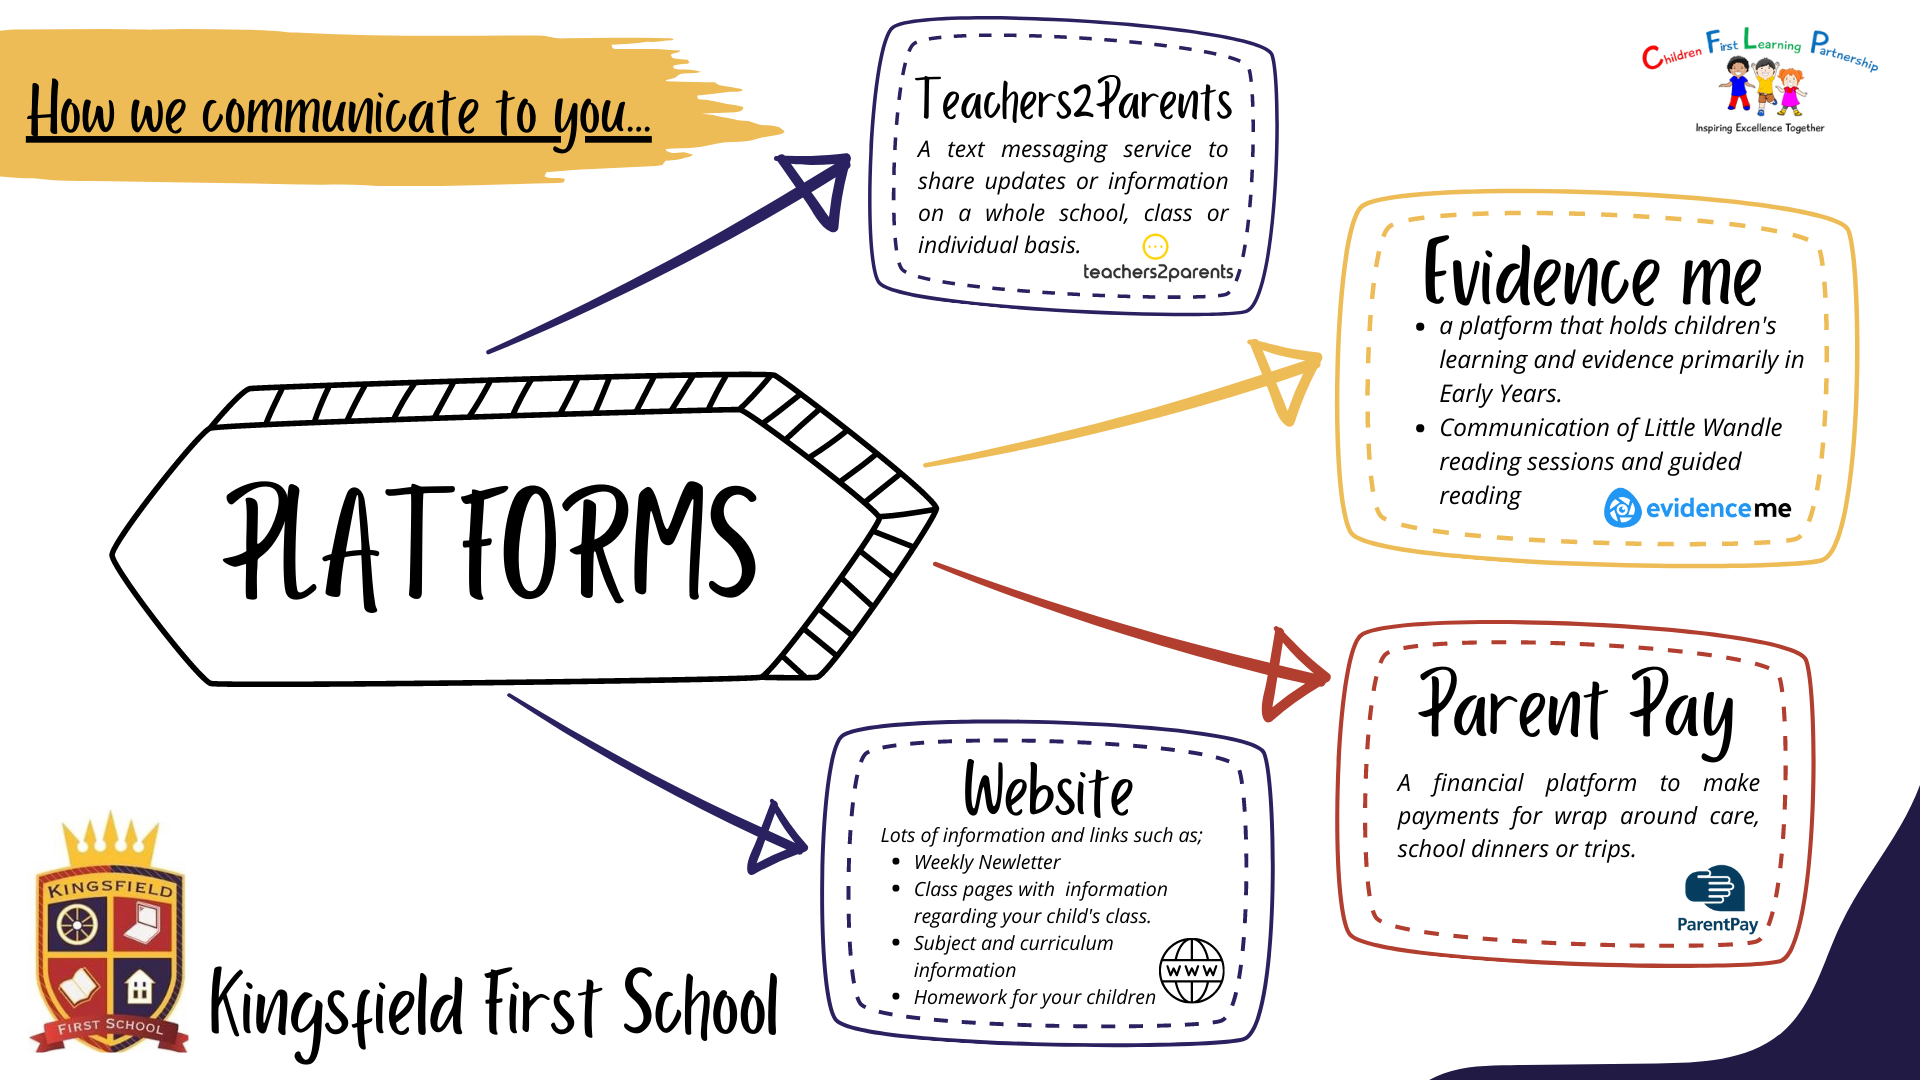 How we communicate to you...
Teachers2Parents
A text messaging service to
share updates or information
on a whole school, class or
individual basis.
teachers2parents
Children First Learning Partnership
Inspiring Excellence Together
Evidence me
a platform that holds children's
learning and evidence primarily in
Early Years.
Communication of Little Wandle
reading sessions and guided
reading
evidenceme
PLATFORMS
Parent Pay
A financial platform to make
payments for wrap around care,
school dinners or trips.
ParentPay
Website
Lots of information and links such as;
Weekly Newletter
Class pages with information
regarding your child's class.
Subject and curriculum
information
Homework for your children
WWW
KINGSFIELD
FIRST SCHOOL
Kingsfield First School